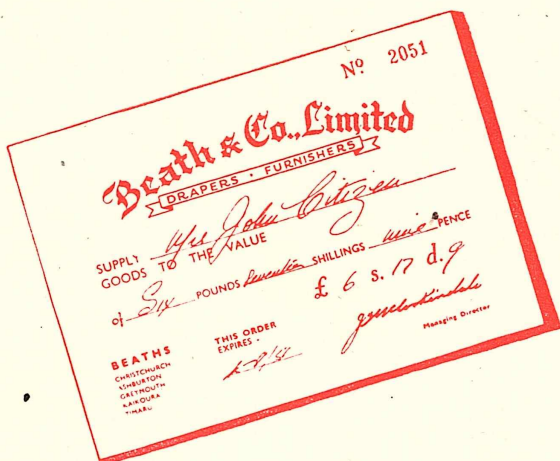 Nº 2051
Beath & Co., Limited
DRAPERS · FURNISHERS
SUPPLY Mrs John Citizen
GOODS TO THE VALUE
of Six POUNDS Seventeen SHILLINGS nine PENCE
£ 6 s. 17 d. 9
BEATHS
CHRISTCHURCH
ASHBURTON
GREYMOUTH
KAIKOURA
TIMARU
THIS ORDER
EXPIRES -
Managing Director